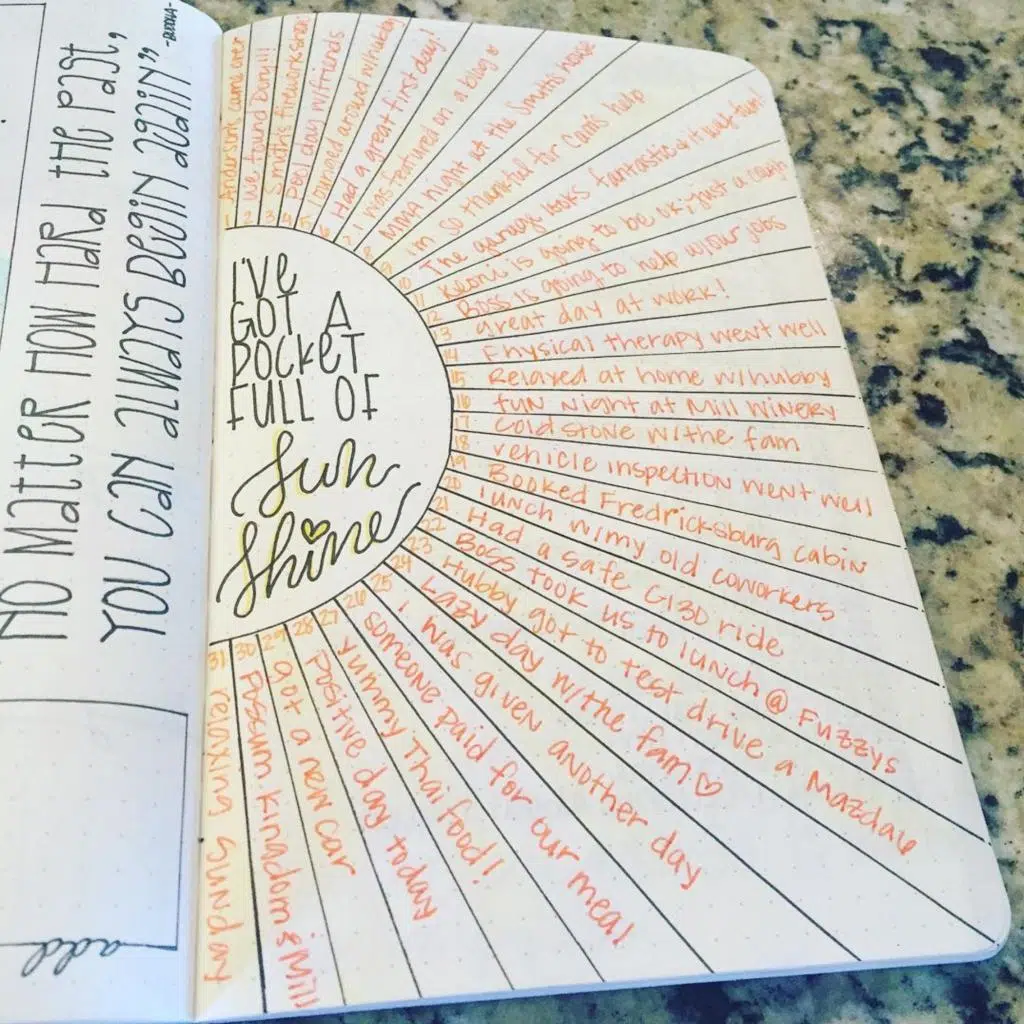 NO MATTER HOW HARD THE PAST,
YOU CAN ALWAYS BEGIN AGAIN"
-BUDDHA-
add
I'VE
GOT A
POCKET
FULL OF
Sun
Shine
1 Andersons came over
2 we found Bunny!!
3 Smith's fireworkshow
4 pool day w/friends
5 lounged around w/hubby
6 Had a great first day!
7 I was featured on a blog
8 MMA night at the Smith's house
9 I'm so thankful for Cam's help
10 The garage looks fantastic & it was fun!
11 Keoni is going to be ok; just a cough
12 Boss is going to help w/our jobs
13 great day at work!
14 Physical therapy went well
15 Relaxed at home w/hubby
16 fun night at Mill Winery
17 Coldstone w/the fam
18 vehicle inspection went well
19 Booked Fredricksburg cabin
20 lunch w/my old coworkers
21 Had a safe G130 ride
22 Boss took us to lunch @ Fuzzys
23 Hubby got to test drive a Mazda
24 Lazy day w/the fam ♡
25 I was given another day
26 someone paid for our meal
27 yummy Thai food!
28 positive day today
29 got a new car
30 Possum Kingdom & Mill
31 relaxing sunday